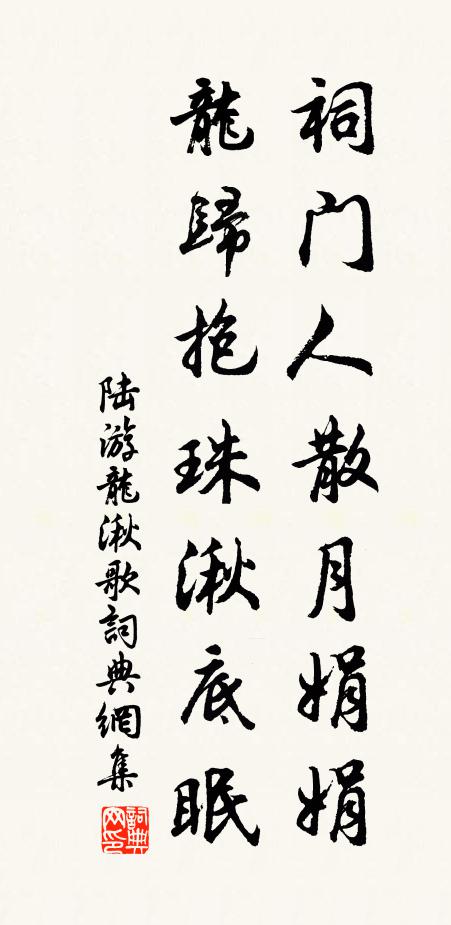 祠门人散月娟娟
龍歸抱珠湫底眠
陆游龍湫歌詞典網集
詞典
网印